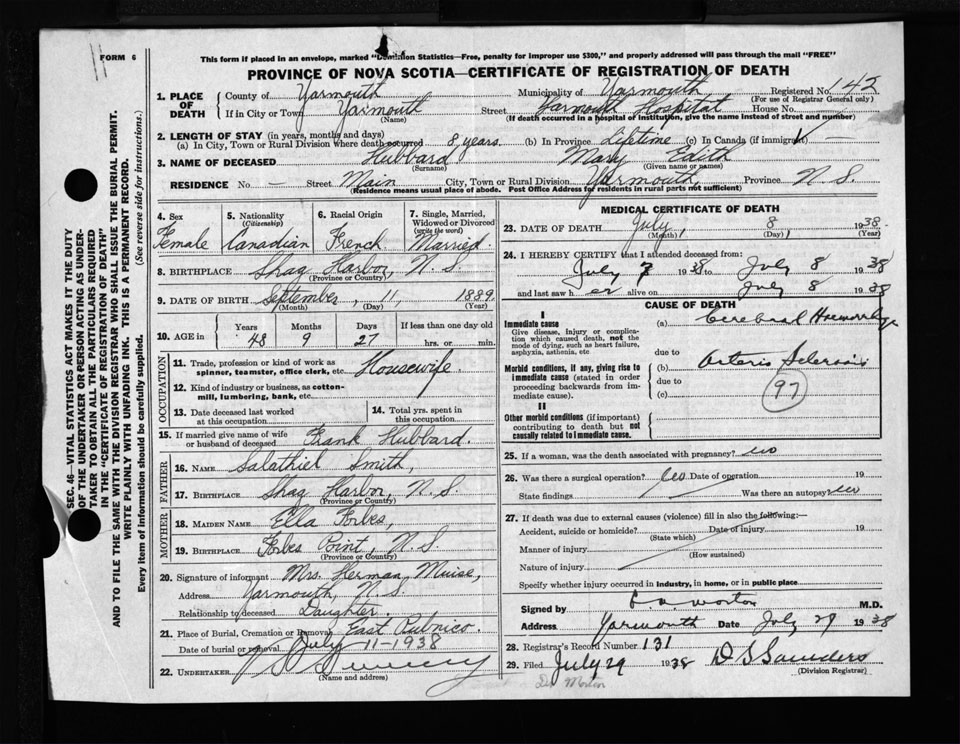 FORM 6
This form if placed in an envelope, marked "Dominion Statistics—Free, penalty for improper use $300," and properly addressed will pass through the mail "FREE"
PROVINCE OF NOVA SCOTIA—CERTIFICATE OF REGISTRATION OF DEATH
SEC. 46—VITAL STATISTICS ACT MAKES IT THE DUTY
OF THE UNDERTAKER OR PERSON ACTING AS UNDER-
TAKER TO OBTAIN ALL THE PARTICULARS REQUIRED
IN THE "CERTIFICATE OF REGISTRATION OF DEATH"
AND TO FILE THE SAME WITH THE DIVISION REGISTRAR WHO SHALL ISSUE THE BURIAL PERMIT.
WRITE PLAINLY WITH UNFADING INK. THIS IS A PERMANENT RECORD.
Every item of information should be carefully supplied. (See reverse side for instructions.)
1. PLACE OF DEATH
County of Yarmouth Municipality of Yarmouth Registered No. 142
(For use of Registrar General only)
If in City or Town Yarmouth Street Yarmouth Hospital House No.
(Name) (If death occurred in a hospital or institution, give the name instead of street and number)
2. LENGTH OF STAY (in years, months and days)
(a) In City, Town or Rural Division where death occurred 8 years. (b) In Province Lifetime (c) In Canada (if immigrant) —
3. NAME OF DECEASED Hubbard Mary Edith
(Surname) (Given name or names)
RESIDENCE No — Street Main City, Town or Rural Division Yarmouth, Province N.S.
(Residence means usual place of abode. Post Office Address for residents in rural parts not sufficient)
4. Sex Female
5. Nationality (Citizenship) Canadian
6. Racial Origin French
7. Single, Married, Widowed or Divorced (write the word) Married.
8. BIRTHPLACE Shag Harbor, N.S.
(Province or Country)
9. DATE OF BIRTH September, 11, 1889
(Month) (Day) (Year)
10. AGE in Years 48 Months 9 Days 27 If less than one day old
hrs. or min.
OCCUPATION
11. Trade, profession or kind of work as spinner, teamster, office clerk, etc. Housewife.
12. Kind of industry or business, as cotton-mill, lumbering, bank, etc.
13. Date deceased last worked at this occupation
14. Total yrs. spent in this occupation
15. If married give name of wife or husband of deceased Frank Hubbard.
FATHER
16. NAME Salathiel Smith,
17. BIRTHPLACE Shag Harbor, N.S.
(Province or Country)
MOTHER
18. MAIDEN NAME Ella Forbes,
19. BIRTHPLACE Forbes Point, N.S.
(Province or Country)
20. Signature of informant Mrs. Herman Muise,
Address Yarmouth, N.S.
Relationship to deceased Daughter.
21. Place of Burial, Cremation or Removal East Pubnico.
Date of burial or removal July 11-1938
22. UNDERTAKER
(Name and address)
MEDICAL CERTIFICATE OF DEATH
23. DATE OF DEATH July, 8 1938
(Month) (Day) (Year)
24. I HEREBY CERTIFY that I attended deceased from:
July 7 1938 to July 8 1938
and last saw her alive on July 8 1938
CAUSE OF DEATH
I
Immediate cause
Give disease, injury or complication which caused death, not the mode of dying, such as heart failure, asphyxia, asthenia, etc
(a) Cerebral Haemorrhage
due to
Morbid conditions, if any, giving rise to immediate cause (stated in order proceeding backwards from immediate cause).
(b) Arterio Sclerosis
due to
(c) 97
II
Other morbid conditions (if important) contributing to death but not causally related to immediate cause.
25. If a woman, was the death associated with pregnancy? no
26. Was there a surgical operation? no Date of operation 19
State findings Was there an autopsy no
27. If death was due to external causes (violence) fill in also the following:—
Accident, suicide or homicide? Date of injury 19
(State which)
Manner of injury
(How sustained)
Nature of injury
Specify whether injury occurred in industry, in home, or in public place
Signed by Morton M.D.
Address Yarmouth Date July 29 1938
28. Registrar's Record Number 131
29. Filed July 29 1938 D S Saunders
(Division Registrar)
Dr Morton